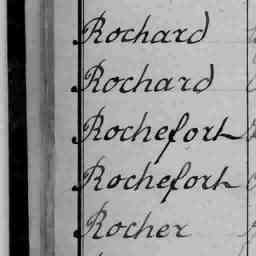 Rochard
Rochard
Rochefort
Rochefort
Rocher